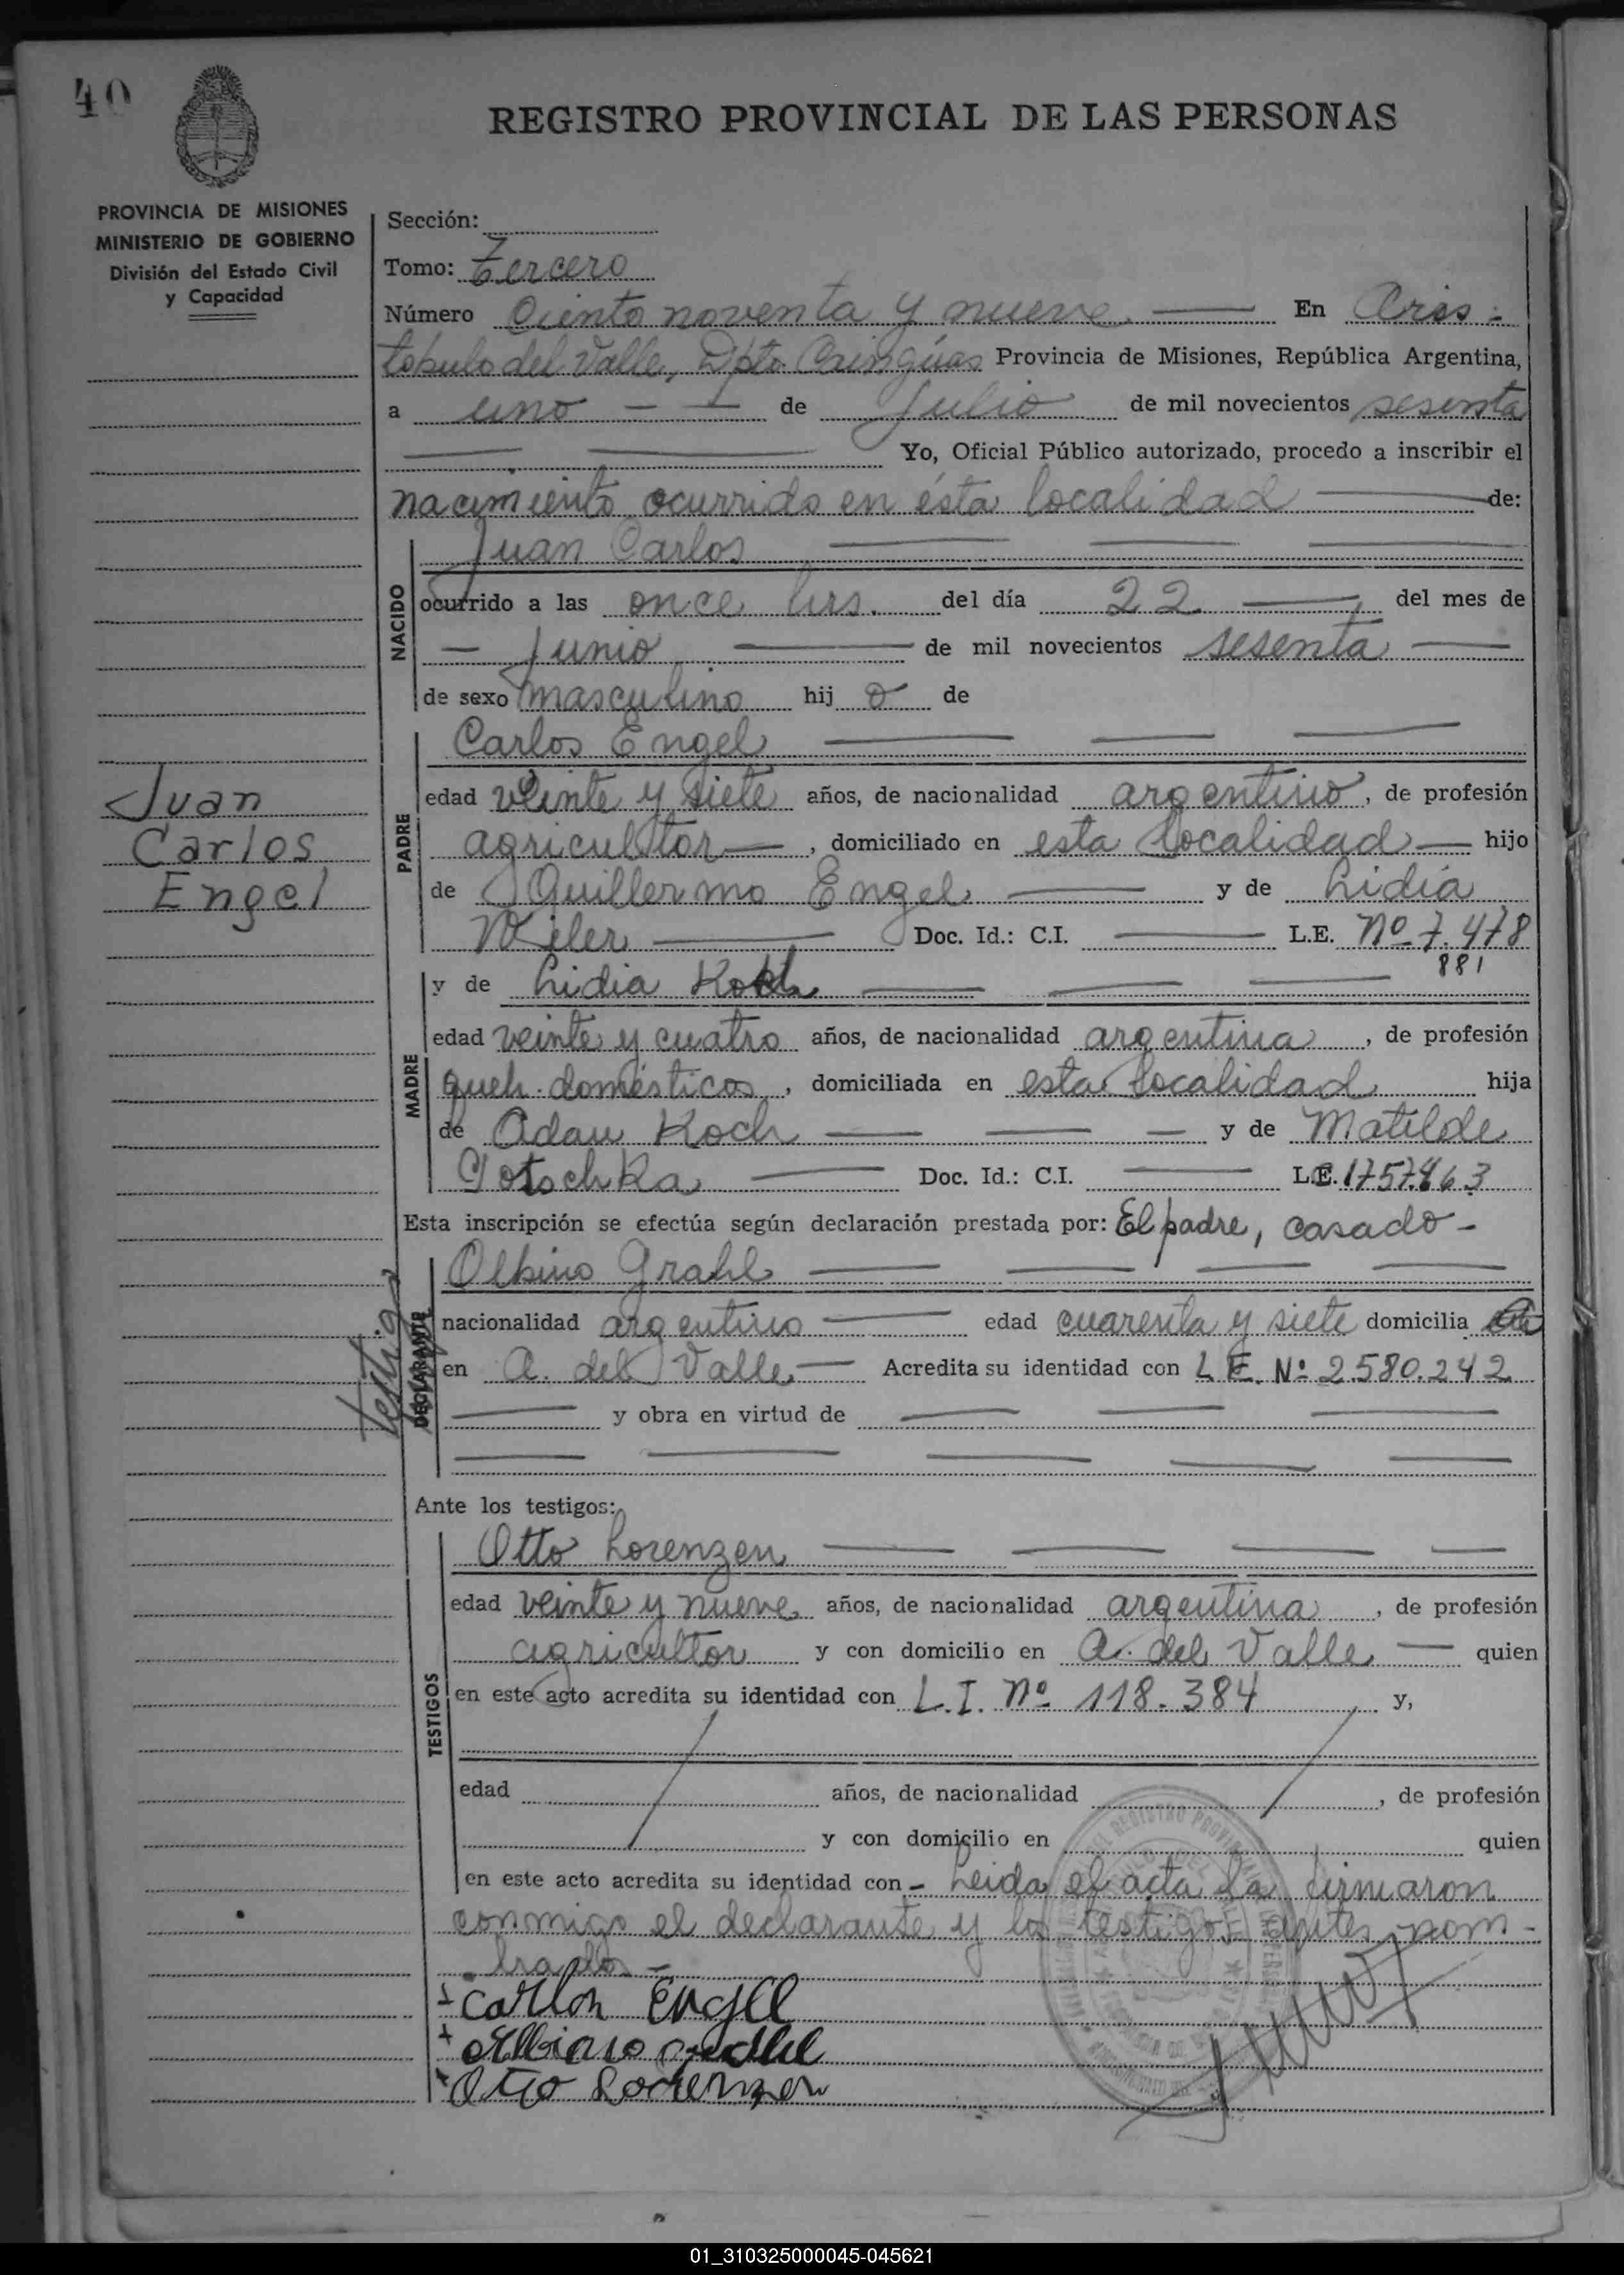 40
REGISTRO PROVINCIAL DE LAS PERSONAS
PROVINCIA DE MISIONES
MINISTERIO DE GOBIERNO
División del Estado Civil
y Capacidad
Sección:
Tomo: Tercero
Número Ciento noventa y nueve En Aris-
tobulo del Valle, Dpto Cainguas Provincia de Misiones, República Argentina,
a uno de Julio de mil novecientos sesenta
Yo, Oficial Público autorizado, procedo a inscribir el
nacimiento ocurrido en ésta localidad de:
NACIDO
Juan Carlos
ocurrido a las once hrs. del día 22 del mes de
Junio de mil novecientos sesenta
de sexo masculino hij o de
Juan
Carlos
Engel
PADRE
Carlos Engel
edad veinte y siete años, de nacionalidad argentino, de profesión
agricultor, domiciliado en esta localidad hijo
de Guillermo Engel y de Lidia
Wiler Doc. Id.: C.I. L.E. Nº 7.478
881
MADRE
y de Lidia Koch
edad veinte y cuatro años, de nacionalidad argentina, de profesión
queh. domésticos, domiciliada en esta localidad hija
de Adan Koch y de Matilde
Doc. Id.: C.I. L.E.
Esta inscripción se efectúa según declaración prestada por: El padre, casado-
testigo
DECLARANTE
Olbino Grahl
nacionalidad argentino edad cuarenta y siete domicilia
en A. del Valle Acredita su identidad con L.E. Nº 2.580.242
y obra en virtud de
Ante los testigos:
TESTIGOS
Otto Lorenzen
edad veinte y nueve años, de nacionalidad argentina, de profesión
agricultor y con domicilio en A. del Valle quien
en este acto acredita su identidad con L.I. Nº 118.384 y,
edad años, de nacionalidad , de profesión
y con domicilio en quien
en este acto acredita su identidad con- Leida el acta la firmaron
conmigo el declarante y los testigos antes nom-
brados-
+ Carlon Engel
+ Albino Grahl
+ Otto Lorenzen
01_310325000045-045621